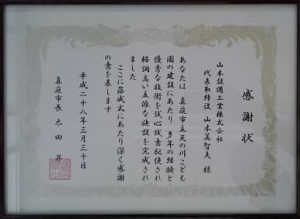 感謝状
山本設備工業株式会社
代表取締役 山本美智夫 様
あなたは、真庭市立天の川こども
園の建設にあたり 多年の経験と
優秀な技術を誠心誠意駆使され
格調高い立派な施設を完成され
ました
ここに落成式にあたり深く感謝
の意を表します
平成二十八年三月三十日
真庭市長 太田 昇